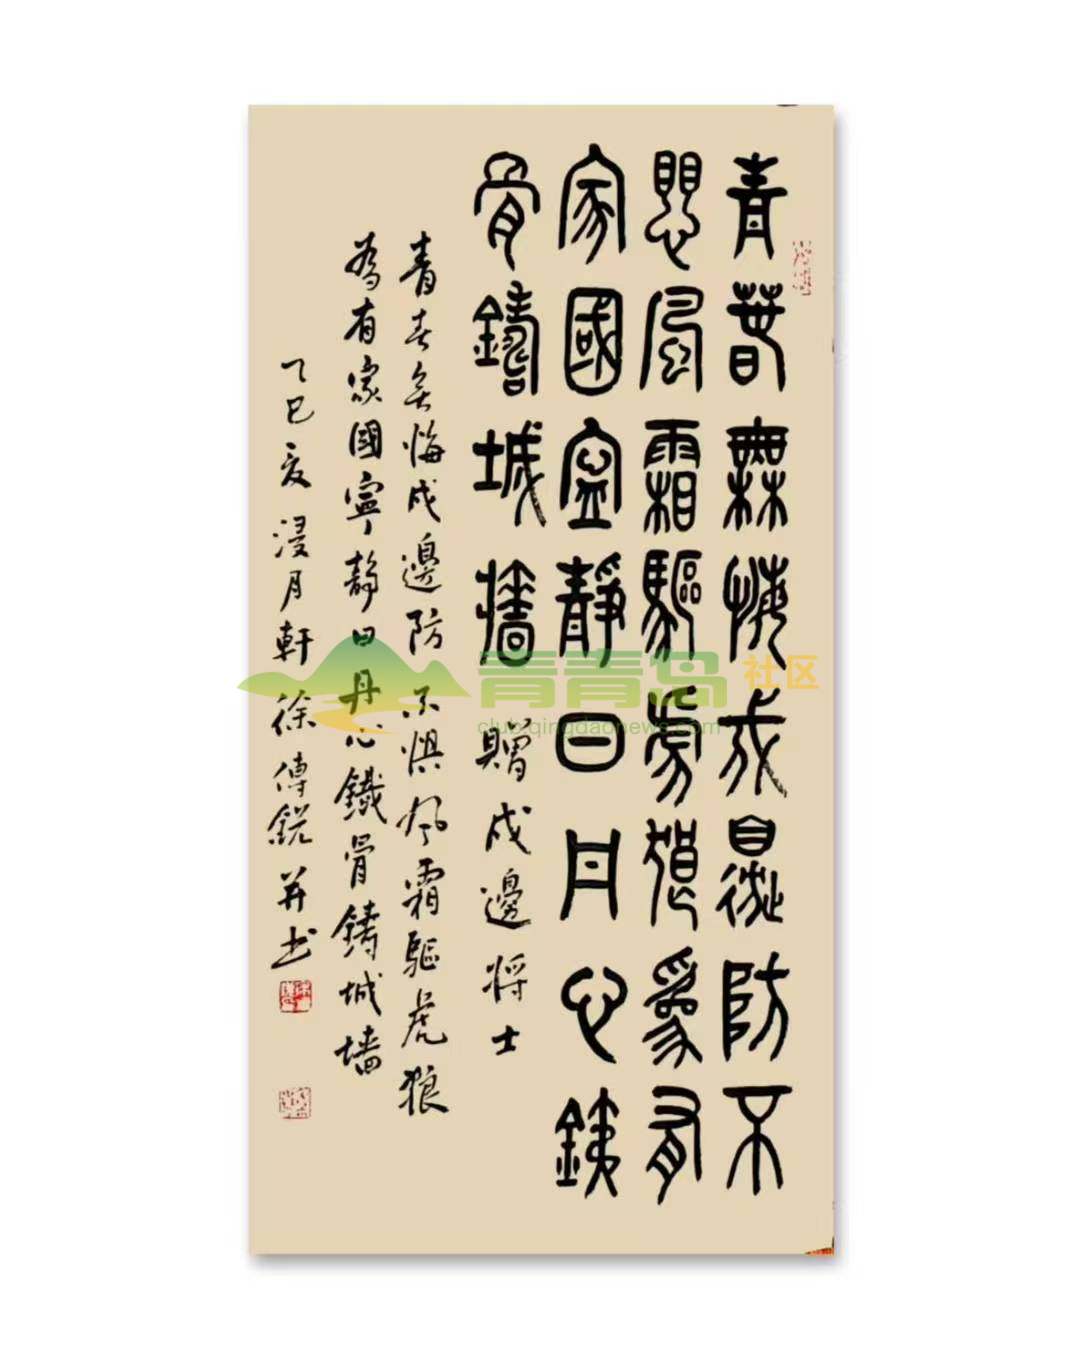 青春無悔戍邊防不
愳風霜驅虎狼爲有
家國寧靜日丹心鐵
骨鑄城牆 贈戍邊将士
青春無悔戍邊防 不惧風霜驅虎狼
為有家國寧靜日丹心鐵骨鑄城墙
乙巳夏 浸月軒 徐傳銳 并书
青青岛社区
club.qingdaonews.com